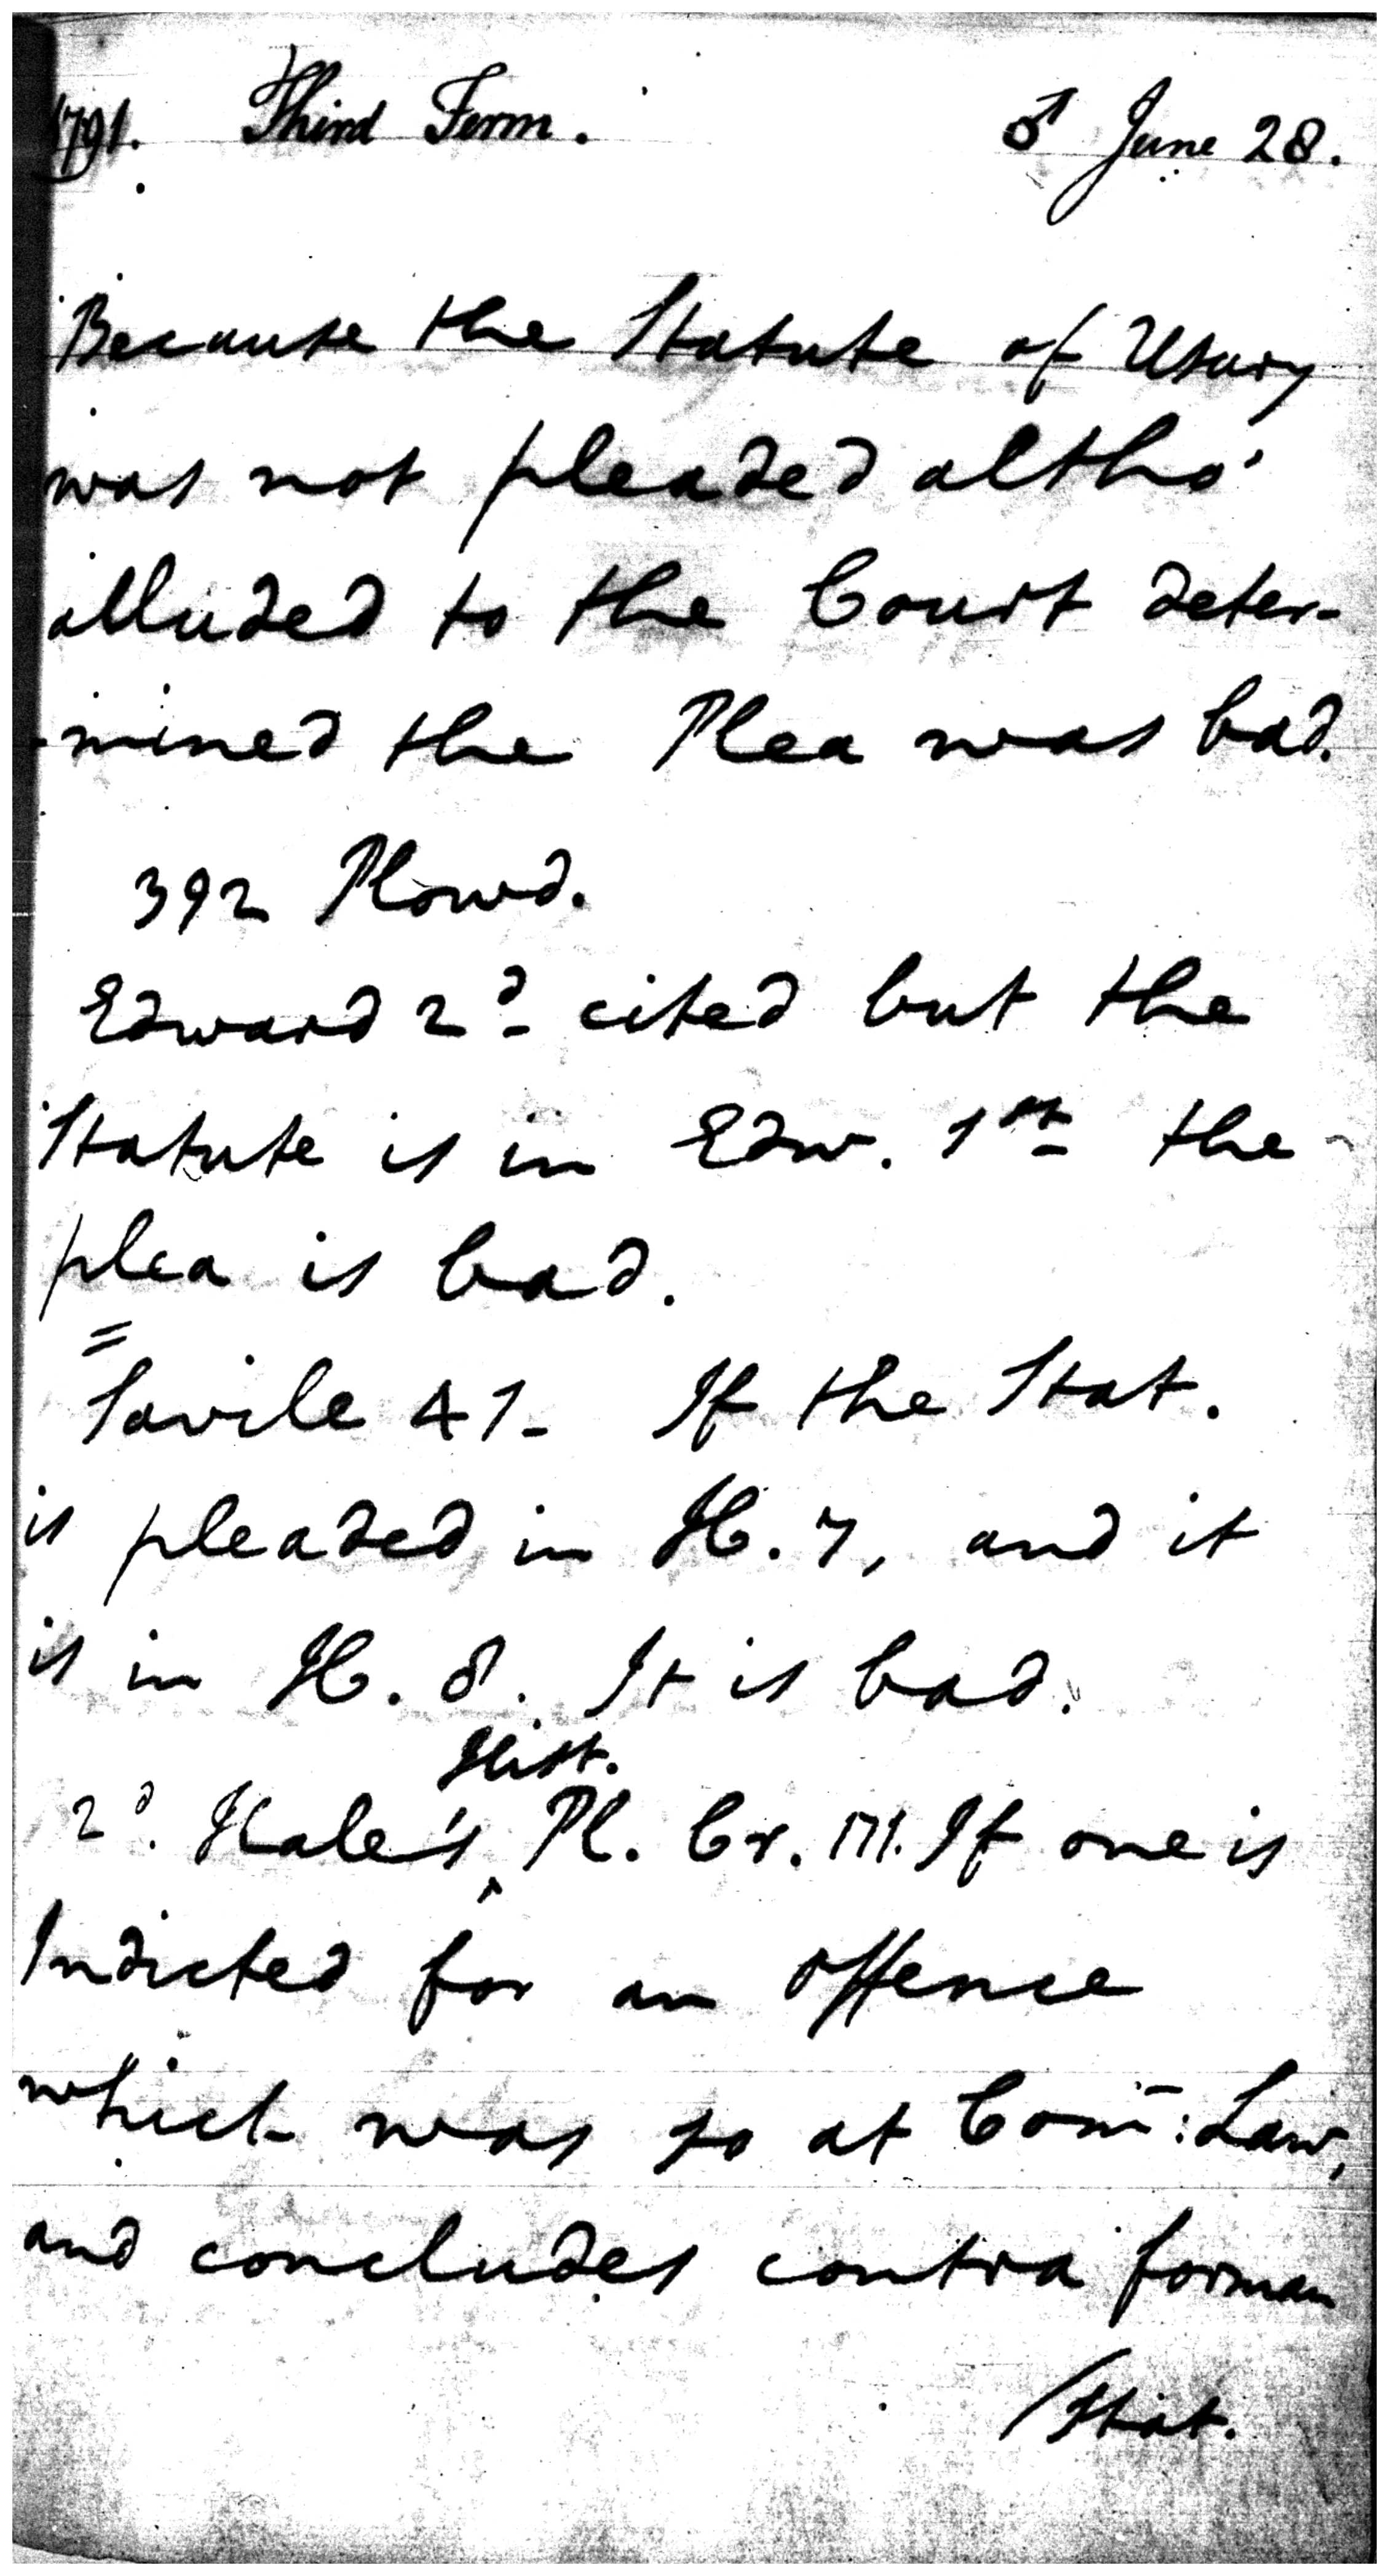 1791. Third Term. ♂ June 28.
Because the Statute of Usury
was not pleaded altho'
alluded to the Court deter-
-mined the Plea was bad.
392 Plowd.
Edward 2d cited but the
Statute is in Edw. 1st the
plea is bad.
Savile 41- If the Stat.
is pleaded in H. 7, and it
is in H. 8. It is bad.
Hist.
2d. Hale's ‸ Pl. Cr. 171. If one is
Indicted for an offence
which was so at Com̄: Law,
and concludes contra forman
Stat.